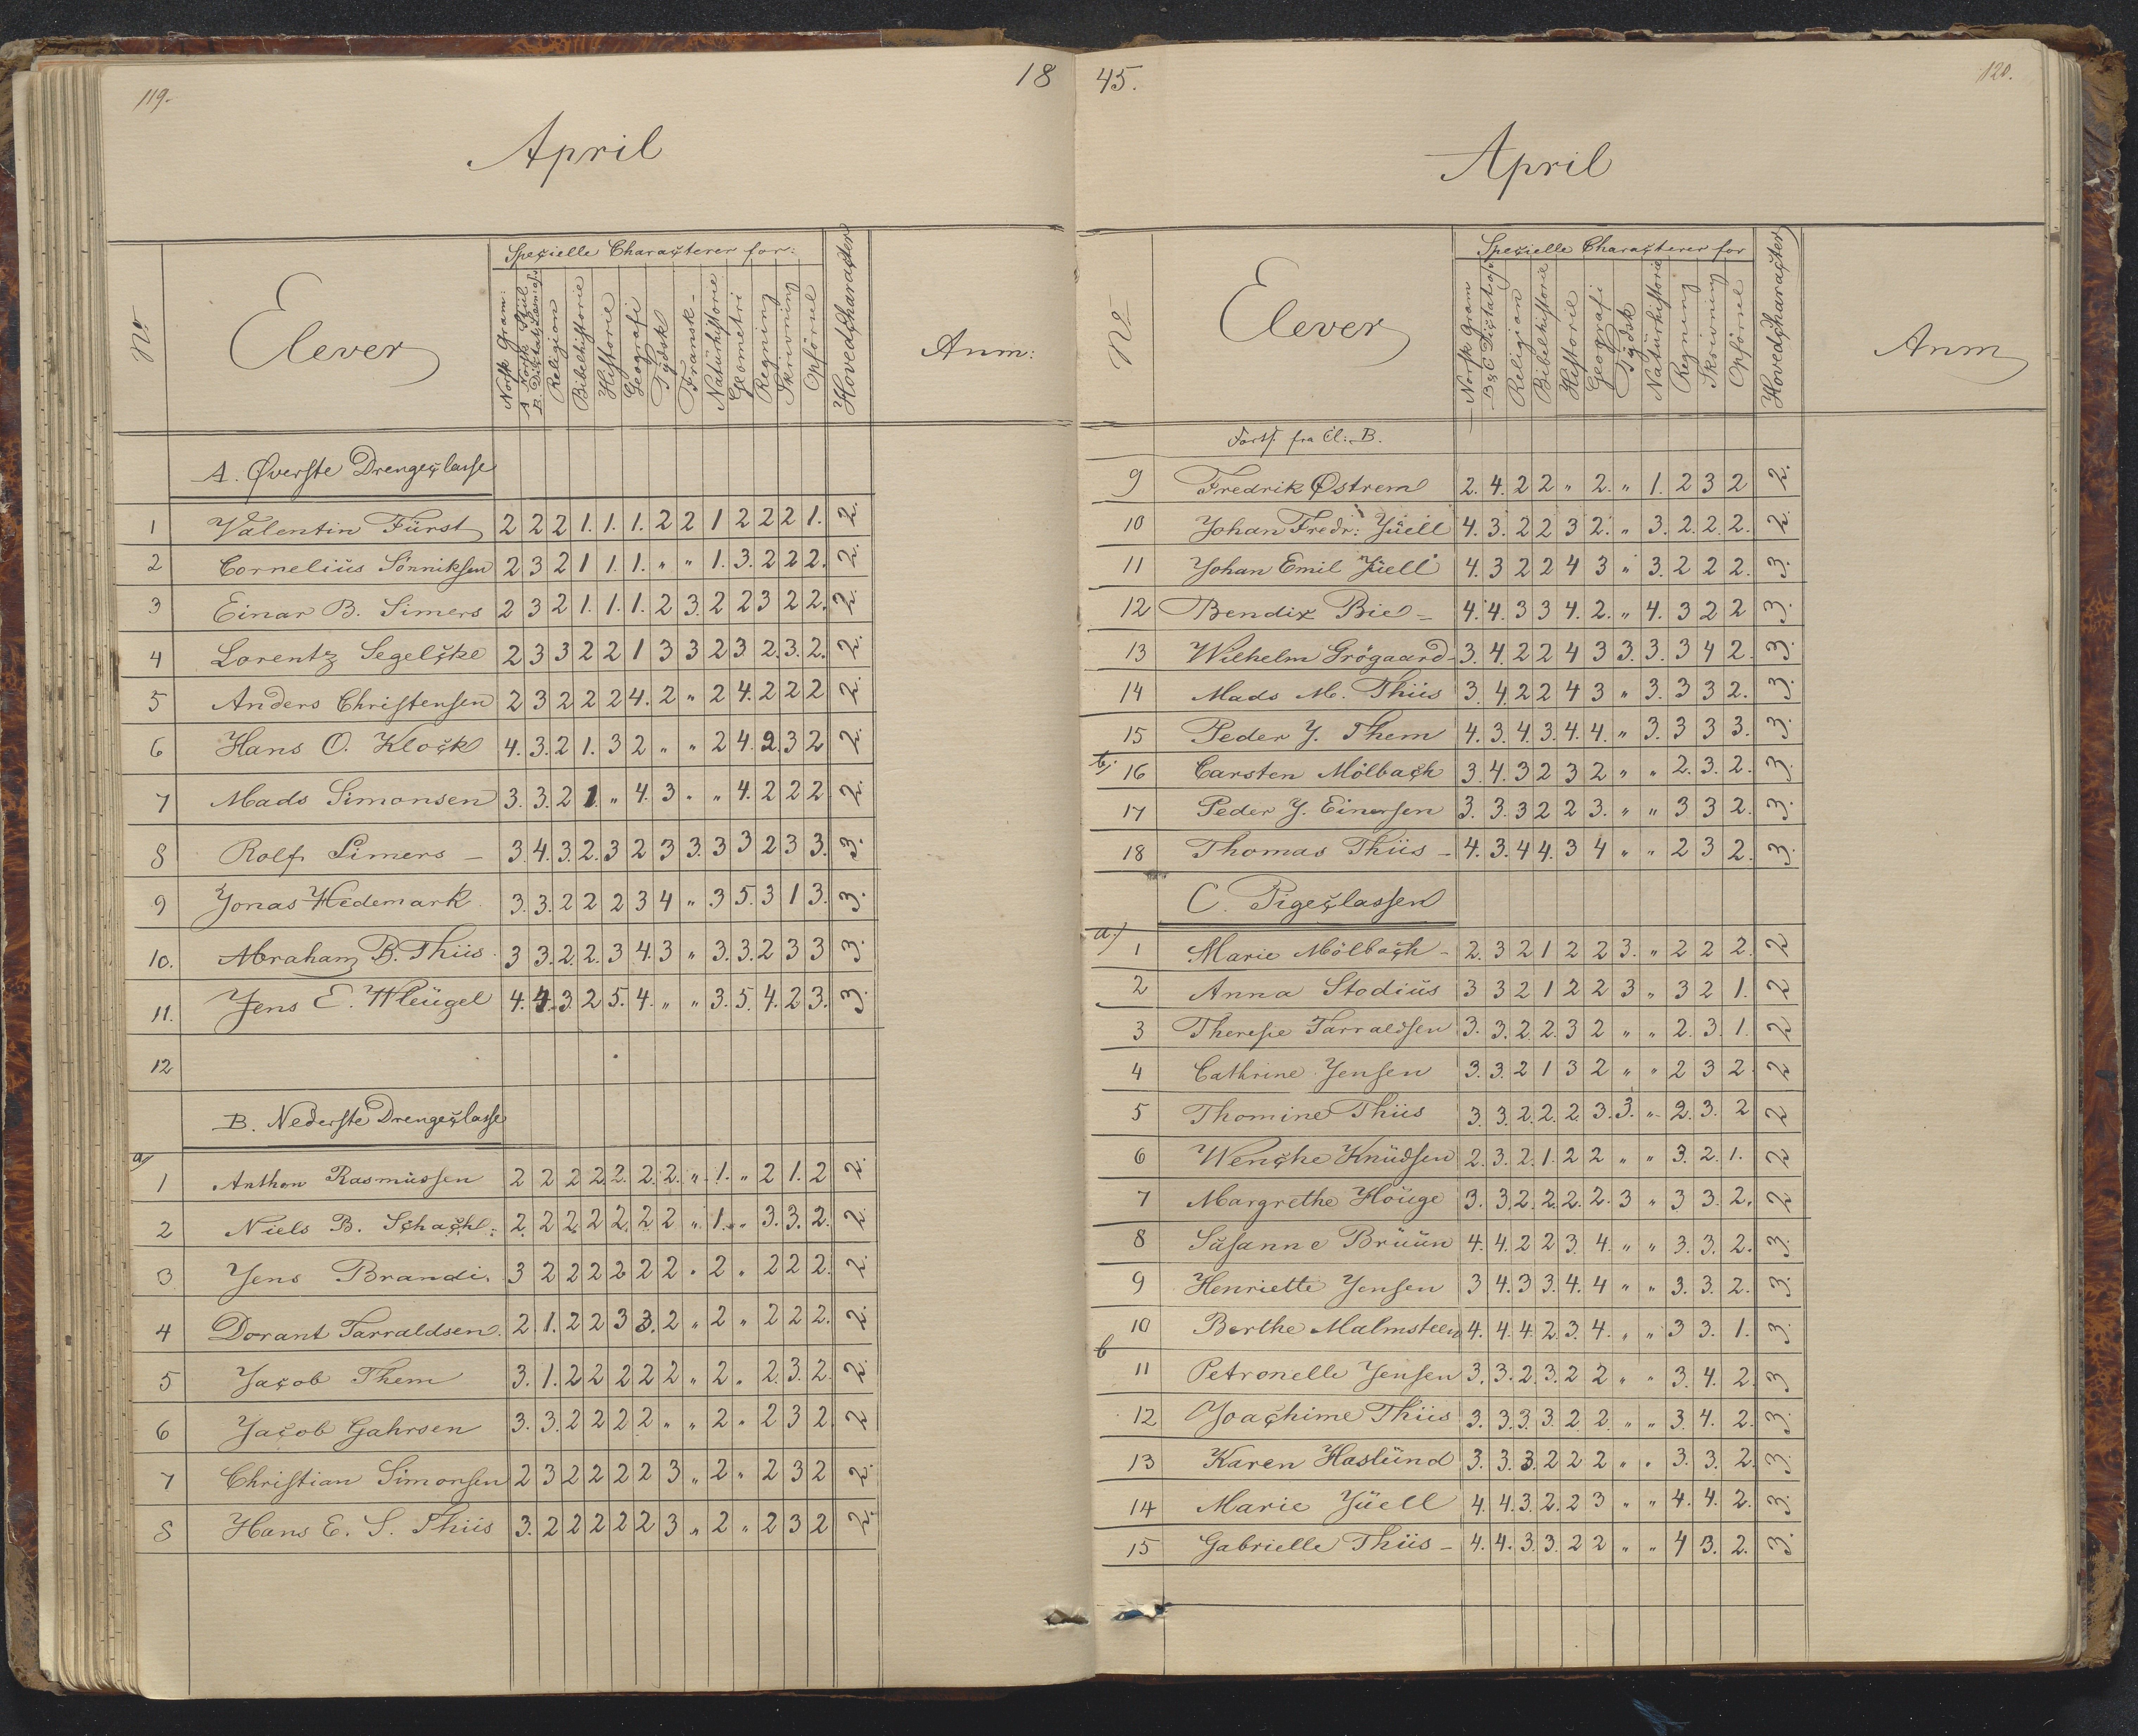 119.
18
April
No
Elever
Specielle Characterer for:
Norsk Gram:
A. Norsk Stiil
B. Dictat, Læsning
Religion
Bibelhistorie
Historie
Geografi
Tydsk
Fransk
Naturhistorie
Geometri
Regning
Skrivning
Opførsel
Hovedcharacter
Anm:
A. Øverste Drengeclasse
1 Valentin Fürst 2 2 2 1. 1. 1. 2 2 1 2 2 2 1. 2.
2 Cornelius Sønniksen 2 3 2 1 1. 1. " " 1. 3. 2 2 2. 2.
3 Einar B. Simers 2 3 2 1. 1. 1. 2 3. 2 2 3 2 2. 2.
4 Lorentz Segelcke 2 3 3 2 2 1 3 3 2 3 2. 3. 2. 2.
5 Anders Christensen 2 3 2 2 2 4. 2 " 2 4. 2 2 2 2.
6 Hans O. Klock 4. 3. 2 1. 3 2 " " 2 4. 2 3 2 2.
7 Mads Simonsen 3. 3. 2 1. " 4. 3 " " 4. 2 2 2 2.
8 Rolf Simers 3. 4. 3. 2. 3 2 3 3. 3 3 2 3 3. 3.
9 Jonas Hedemark 3. 3. 2 2 2 3 4 " 3 5. 3 1 3. 3.
10. Abraham B. Thiis 3 3. 2. 2. 3 4. 3 " 3. 3. 2 3 3 3.
11. Jens E. Fleugel 4. 4. 3 2 5. 4. " " 3. 5. 4. 2 3. 3.
12
B. Nederste Drengeclasse
a/
1 Anthon Rasmussen 2 2 2 2 2. 2. 2. " 1. " 2 1. 2 2.
2 Niels B. Schachl: 2. 2 2 2 2. 2 2 " 1. " 3. 3. 2. 2.
3 Jens Brandi. 3 2 2 2 2 2 2 " 2 " 2 2 2. 2.
4 Dorant Tarraldsen. 2. 1. 2 2 3 3. 2 " 2 " 2 2 2. 2.
5 Jacob Them 3. 1. 2 2 2 2 2 " 2 " 2. 3. 2. 2.
6 Jacob Gahrsen 3. 3. 2 2 2 2 " " 2 " 2 3 2. 2
7 Christian Simonsen 2 3 2 2 2 2 3 " 2 " 2 3 2 2.
8 Hans E. S. Thiis 3. 2 2 2 2 2 3 " 2 " 2 3 2 2.
45.
120.
April
No
Elever
Specielle Characterer for
Norsk Gram
B & C Dictat
Religion
Bibelhistorie
Historie
Geografi
Tydsk
Naturhistorie
Regning
Skrivning
Opførsel
Hovedcharacter
Anm
Forts. fra Cl: B.
9 Fredrik Østrem 2. 4. 2 2 " 2. " 1. 2 3 2 2.
10 Johan Fredr: Jüell 4. 3. 2 2 3 2. " 3. 2. 2. 2. 2.
11 Johan Emil Jüell 4. 3 2 2 4 3 " 3. 2 2 2. 3.
12 Bendix Bie 4. 4. 3 3 4. 2. " 4. 3 2 2 3.
13 Wilhelm Grøgaard 3. 4. 2 2 4 3 3. 3. 3 4 2. 3.
14 Mads M. Thiis 3. 4. 2 2 4 3 " 3. 3 3 2. 3.
15 Peder J. Them 4. 3. 4. 3. 4. 4. " 3. 3 3 3. 3.
b/
16 Carsten Mölbach 3. 4. 3 2 3 2 " " 2. 3. 2. 3.
17 Peder J. Einersen 3. 3. 3 2 2 3. " " 3 3 2. 3.
18 Thomas Thiis 4. 3. 4 4. 3 4 " " 2 3 2. 3.
C. Pigeclassen
a./
1 Marie Mölbach 2. 3 2 1 2 2 3. " 2 2 2. 2
2 Anna Stodius 3 3 2 1 2 2 3 " 3 2 1. 2
3 Therese Tarraldsen 3. 3. 2 2. 3 2 " " 2. 3. 1. 2
4 Cathrine Jensen 3. 3. 2 1 3 2 " " 2 3 2. 2
5 Thomine Thiis 3. 3. 2. 2. 2 3. 3. " 2. 3. 2 2
6 Wenche Knüdsen 2. 3. 2. 1. 2 2 " " 3. 2. 1. 2
7 Margrethe Houge 3. 3. 2. 2. 2. 2. 3 " 3 3. 2. 2
8 Susanne Brüün 4. 4. 2 2 3. 4. " " 3. 3. 2. 3.
9 Henriette Jensen 3 4. 3 3. 4. 4 " " 3. 3. 2. 3.
10 Berthe Malmsteen 4. 4. 4. 2. 3. 4. " " 3 3. 1. 3.
b
11 Petronelle Jensen 3. 3. 2. 3. 2 2 " " 3. 4. 2. 3
12 Joachime Thiis 3. 3. 3. 3. 2 2. " " 3 4. 2. 3.
13 Karen Haslünd 3. 3. 3. 2 2 2 " " 3. 3. 2. 3.
14 Marie Jüell 4. 4. 3. 2. 2 3 " " 4. 4. 2. 3.
15 Gabrielle Thiis 4. 4. 3. 3. 2 2 " " 4 3. 2. 3.